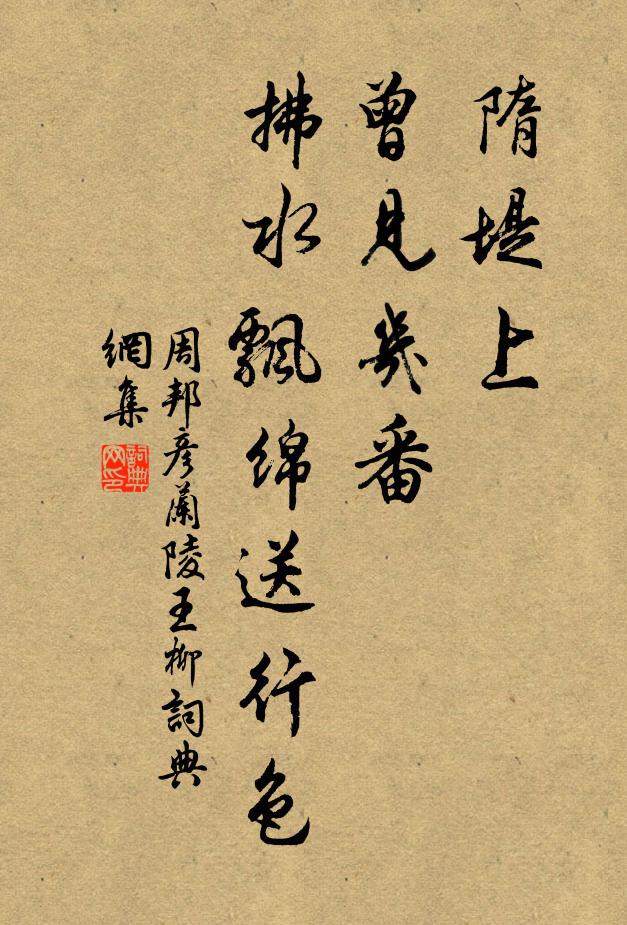 隋堤上
曾見幾番
拂水飄綿送行色
周邦彥蘭陵王柳詞典
網集
詞典
网印